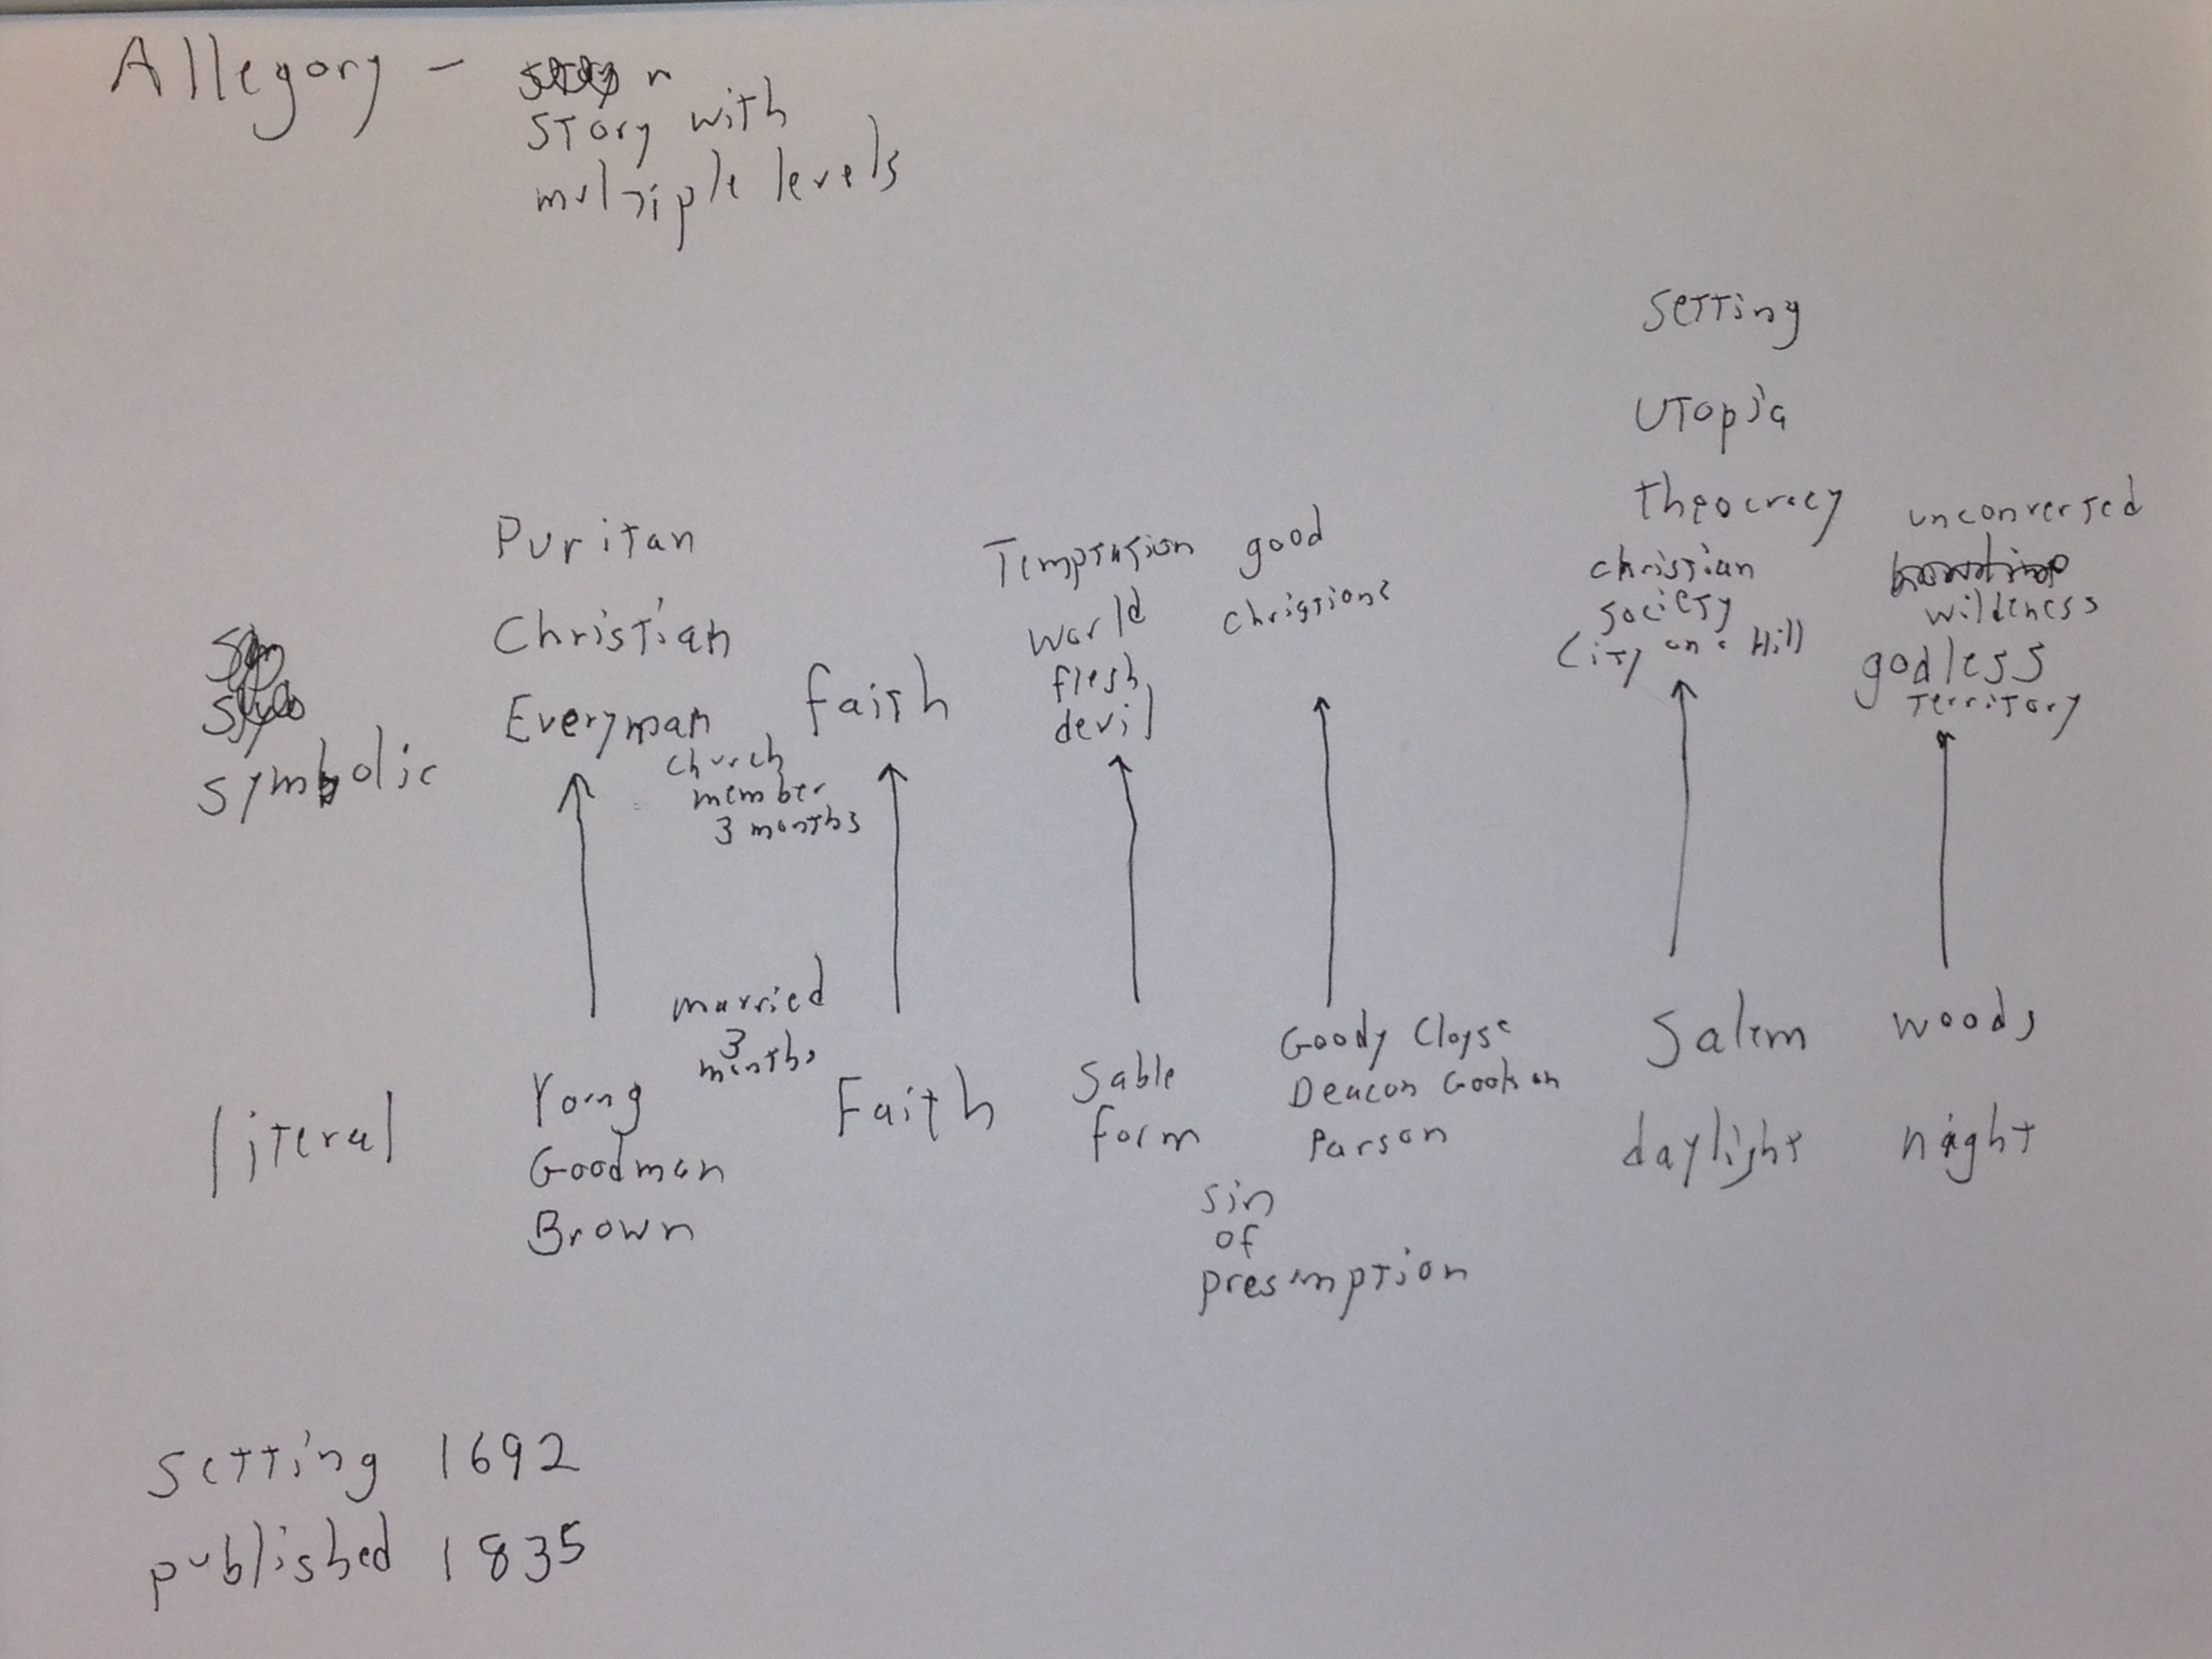 Allegory -
story with
multiple levels
Setting
Utopia
Theocracy
christian
society
City on a Hill
unconverted
wildeness
godless
territory
Puritan
Christian
Everyman
church
member
3 months
faith
Temptation
world
flesh
devil
good
christians
symbolic
literal
Young
Goodman
Brown
married
3
months
Faith
Sable
form
Goody Cloyse
Deacon Gookin
Parson
sin
of
presumption
Salem
daylight
woods
night
Setting 1692
published 1835